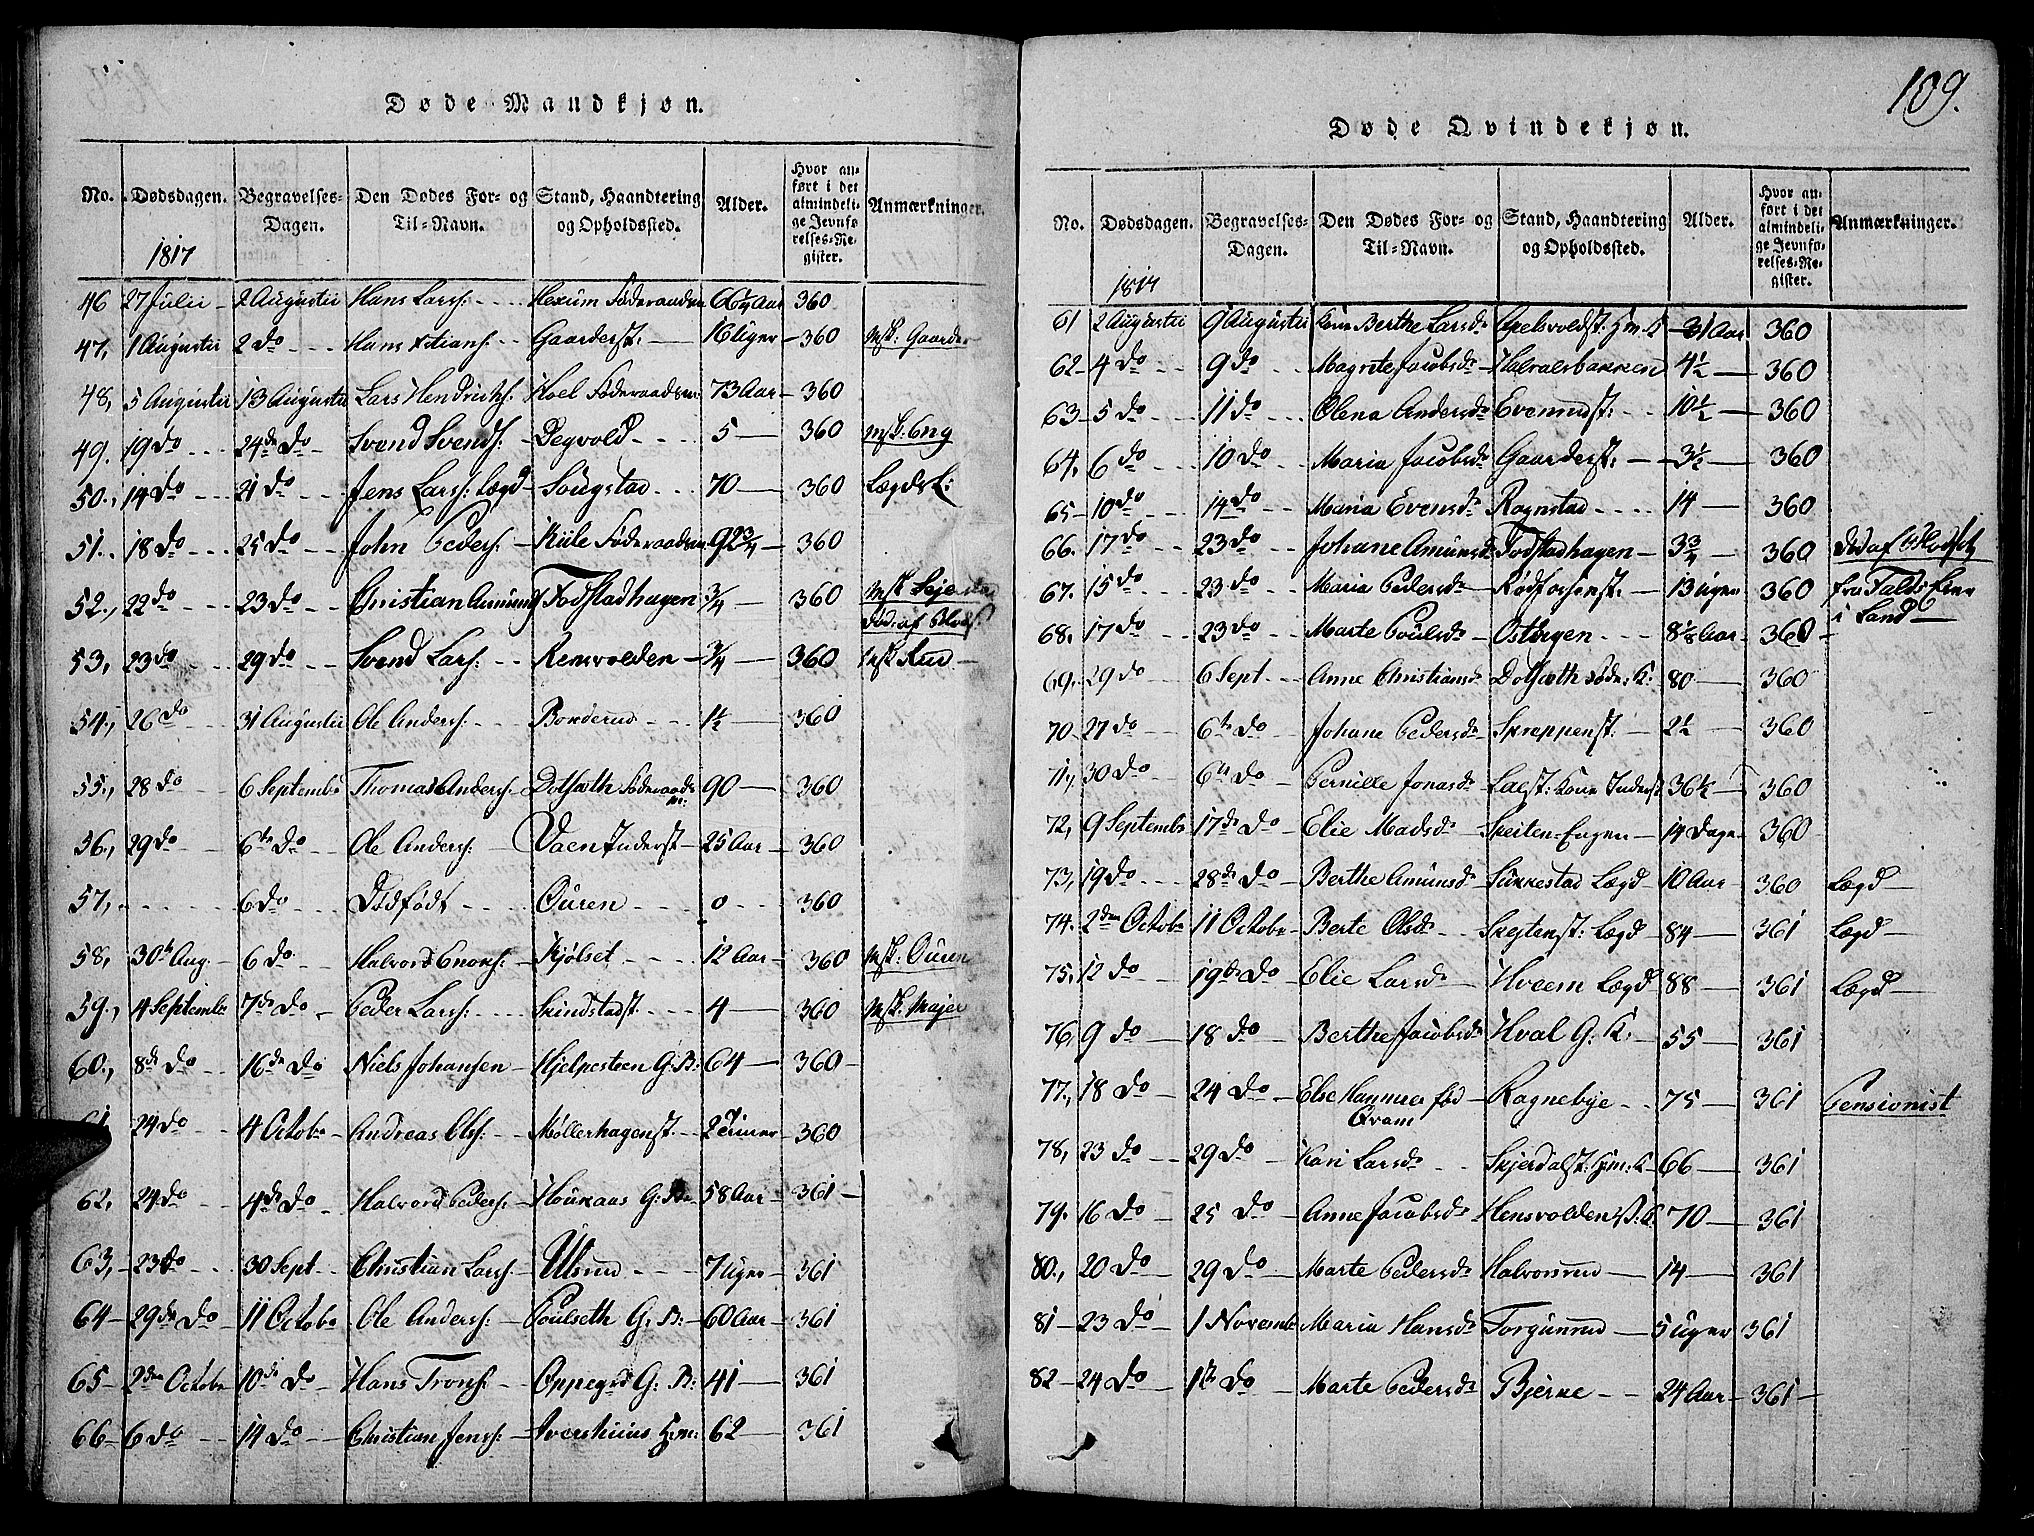 109.
Døde Mandkjøn.
No. Dødsdagen. Begravelses-Dagen. Den Dødes For- og Til-Navn. Stand, Haandtering og Opholdssted. Alder. Hvor anført i det almindelige Jevnførelses-Register. Anmærkninger.
1817
46 27 Julii 2 Augustii Hans Lars: Hexum Föderaadsm 66 Aar 360
47, 1 Augustii 2 do Hans Xtians: Gaarderst: 16 Uger 360 Msk: Gaarder
48, 5 Augustii 13 Augustii Lars Hendrichs: Hoel Föderaadsm: 73 Aar 360
49. 19 do 24de do Svend Svends: Degvold 5 360 Msk: Eng
50., 14 do 21 do Jens Lars: Lægd Sougstad 70 360 Lægdsl:
51., 18 do 25 do John Peders: Kiile Föderaadsm 92¾ 360
52., 22 do 23 do Christian Amunds Fodstadhagen ¾ 360 Msk
Död: af
53, 23 do 29 do Svend Lars: Rensvolden ¾ 360 Msk Rud
54., 26 do 31 Augustii Ole Anders: Bonderud 1½ 360
55., 28 do 6 Septembr Thomas Anders: Dotsæth Föderaadsm: 90 360
56., 29 do 6te do Ole Anders: Vaen Inderst 25 Aar 360
57, 6 do Dödfödt Ouren 0 360
58, 30te Aug. 6 do Halvord Enors: Kjölset 12 Aar 360 Msk: Ouren
59., 4 Septembr 7de do Peder Lars: Skindstadst. 4 360 Msk: Majer
60., 8de do 16de do Niels Johansen Hjelpesteen G: B: 64 360
61 24 do 4 Octobr Andreas Ols: Möllerhagenst. 2 Timer 360
62, 24 do 4de do Halvord Peders: Houkaas G: Br 58 Aar 361
63, 23 do 30 Sept Christian Lars: Ulsrud 7 Uger 361
64 29de do 11 Octobr Ole Anders: Poulseth G: B: 60 Aar 361
65 2den Octobr 10de do Hans Trons: Oppegrd G: B: 41 361
66 6 do 14 do Christian Jens: Hvershuus Hm: 62 361
Døde Qvindekjøn.
No. Dødsdagen. Begravelses-Dagen. Den Dødes For- og Til-Navn. Stand, Haandtering og Opholdssted. Alder. Hvor anført i det almindelige Jevnførelses-Register. Anmærkninger.
1817
61 2 Augustii 9 Augustii Kone Berthe Larsdr Axelsvoldst: Hm: K 31 Aar 360
62 4 do 9 do Magrete Jacobsdr Halvalsbakken 4½ 360
63 5 do 11 do Olena Andersdr Evenrudst: 10½ 360
64, 6 do 10 do Maria Jacobsdr Gaarderst: 3½ 360
65 10 do 14 do Maria Evensdr Rognstad 14 360
66. 17 do 23 do Johane Amunsdr Fodstadhagen 3¾ 360 Död af Blodsot
67. 15 do 23 do Maria Pedersdr Rödfossenst: 13 Uger 360
68. 17 do 23 do Marte Poulsdr Ostingen 8½ Aar 360 i Land
69. 29 do 6 Sept Anne Christiansdr Dotsæth Föde: K: 80 360
70 27 do 6te do Johane Pedersdr Skreppenst: 2½ 360
71, 30 do 6te do Pernille Jonasdr Laest: Kone Inderst 36½ 360
72, 9 Septembr 17de do Elie Madsdr Skeiten-Engen 14 Dage 360
73, 19 do 28de do Berthe Amunsdr Sukkestad Lægd 10 Aar 360 Lægd
74. 2den Octobr 11 Octobr Berte Olsdr Skejtenst: Lægd 84 361 Lægd
75. 12 do 19de do Elie Larsdr Hveem Lægd 88 361 Lægd
76, 9 do 18 do Berthe Jacobsdr Hval G: K: 55 361
77., 18 do 24 do Else Hannea fød Qvam Ragnebye 75 361 Pensionist
78, 23 do 29 do Kari Larsdr Skjerdalst: Hm: K 66 361
79. 16 do 25 do Anne Jacobsdr Hensvolden 70 361
80., 20 do 29 do Marte Pedersdr Halvorsrud 14 361
81 23 do 1 Novembr Maria Hansdr Torgunrud 5 Uger 361
82 24 do 1te do Marte Pedersdr Bjerne 24 Aar 361